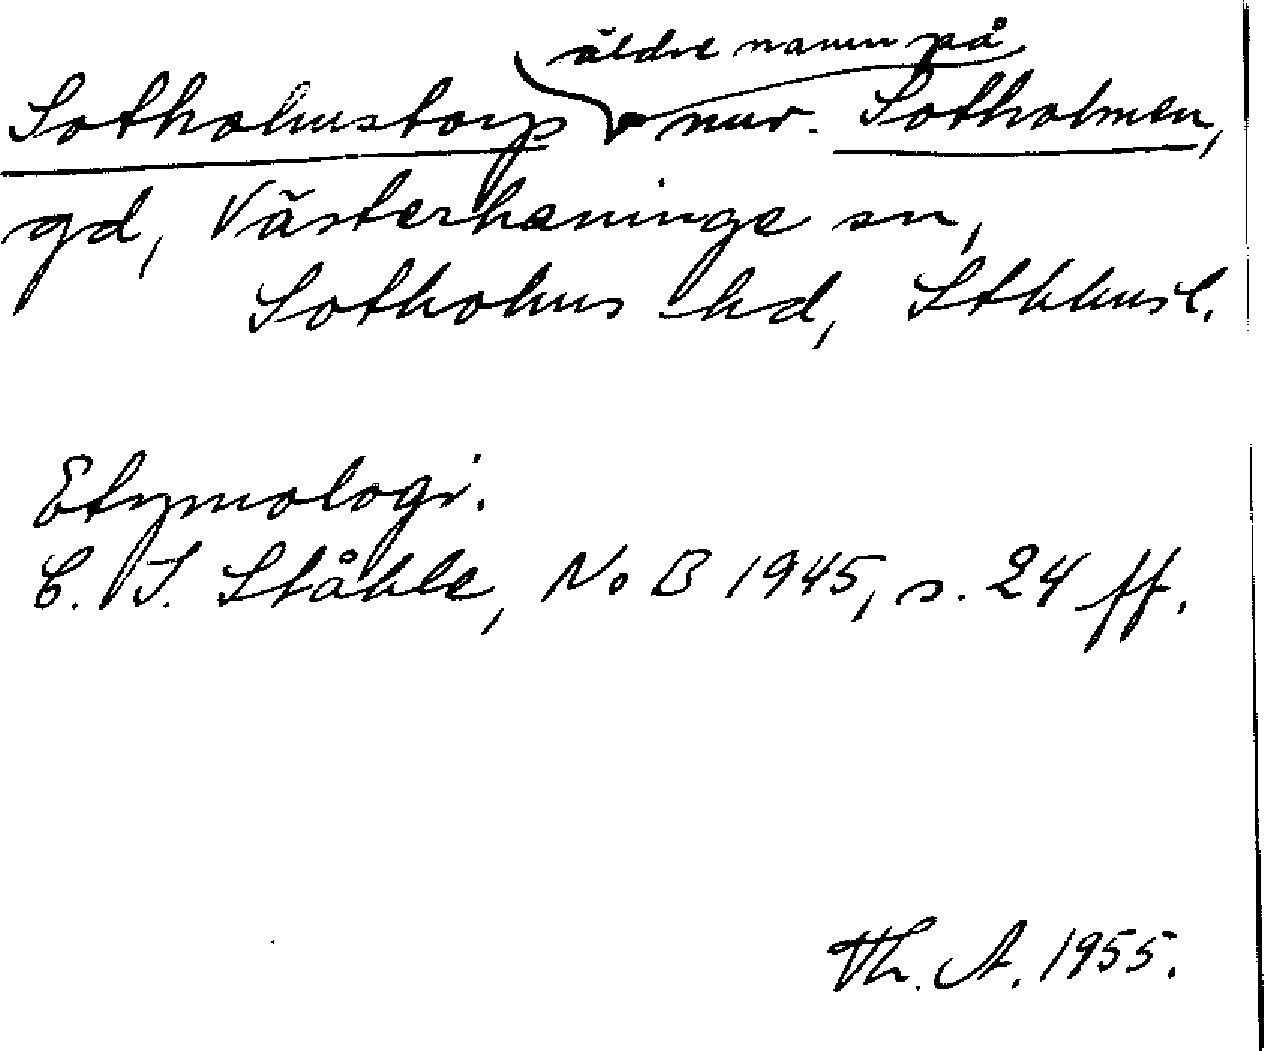 äldre namn på
Sotholmstorp nuv. Sotholmen,
gd, Västerhaninge sn,
Sotholms hd, Sthlms l.
Etymologi.
C. I. Ståhle, NoB 1945, s. 24 ff.
Th. A. 1955.